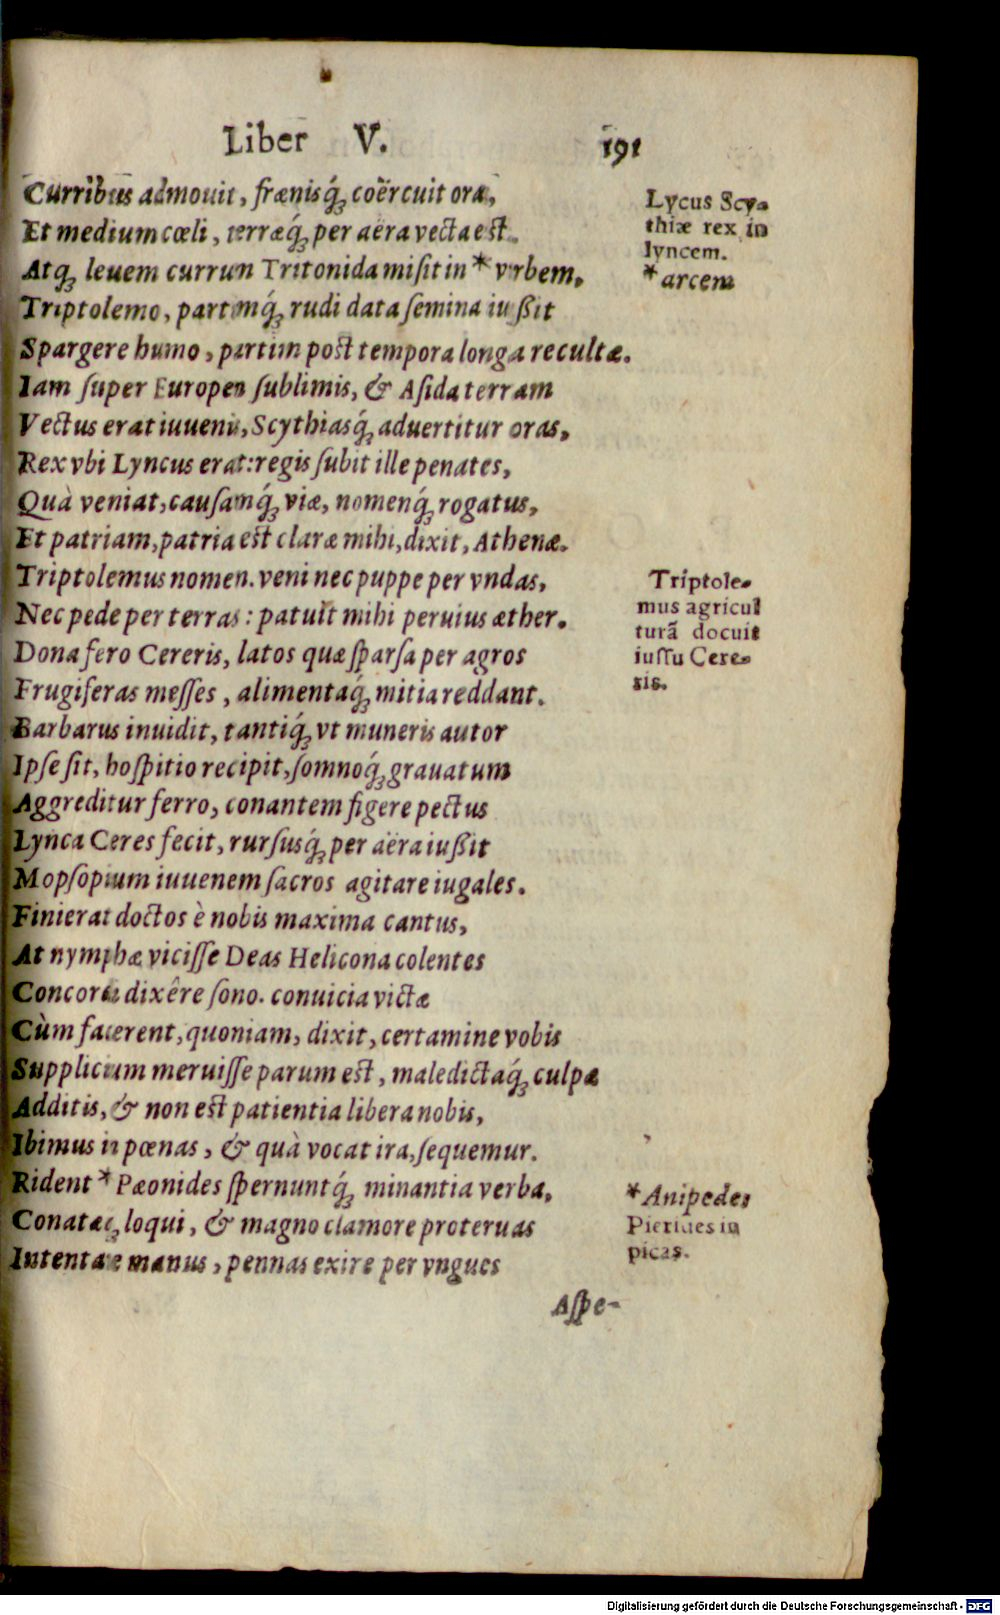 Liber V. 191
Curribus admouit, frænisq́ꝫ coërcuit ora,
Et medium cœli, terræq́ꝫ per aëra vecta est.
Atqꝫ leuem currum Tritonida misit in * vrbem,
Triptolemo, partimq́ꝫ rudi data semina iußit
Spargere humo, partim post tempora longa recultæ.
Iam super Europen sublimis, & Asida terram
Vectus erat iuuenis, Scythiasq́ꝫ aduertitur oras,
Rex vbi Lyncus erat: regis subit ille penates,
Quà veniat, causamq́ꝫ viæ, nomenq́ꝫ rogatus,
Et patriam, patria est claræ mihi, dixit, Athenæ.
Triptolemus nomen. veni nec puppe per vndas,
Nec pede per terras: patuit mihi peruius æther.
Dona fero Cereris, latos quæ sparsa per agros
Frugiferas messes, alimentaq́ꝫ mitia reddant.
Barbarus inuidit, tantiq́ꝫ vt muneris autor
Ipse sit, hospitio recipit, somnoq́ꝫ grauatum
Aggreditur ferro, conantem figere pectus
Lynca Ceres fecit, rursusq́ꝫ per aëra iußit
Mopsopium iuuenem sacros agitare iugales.
Finierat doctos è nobis maxima cantus,
At nymphæ vicisse Deas Helicona colentes
Concordi dixêre sono. conuicia victæ
Cùm facerent, quoniam, dixit, certamine vobis
Supplicium meruisse parum est, maledictaq́ꝫ culpæ
Additis, & non est patientia libera nobis,
Ibimus in pœnas, & quà vocat ira, sequemur.
Rident * Pæonides spernuntq́ꝫ minantia verba,
Conatæqꝫ loqui, & magno clamore proteruas
Intentare manus, pennas exire per vngues
Aspe-
Lycus Scy-
thiæ rex in
lyncem.
* arcem
Triptole-
mus agricul
turã docuit
iussu Cere-
ris.
* Anipedes
Pierides in
picas.
Digitalisierung gefördert durch die Deutsche Forschungsgemeinschaft - DFG